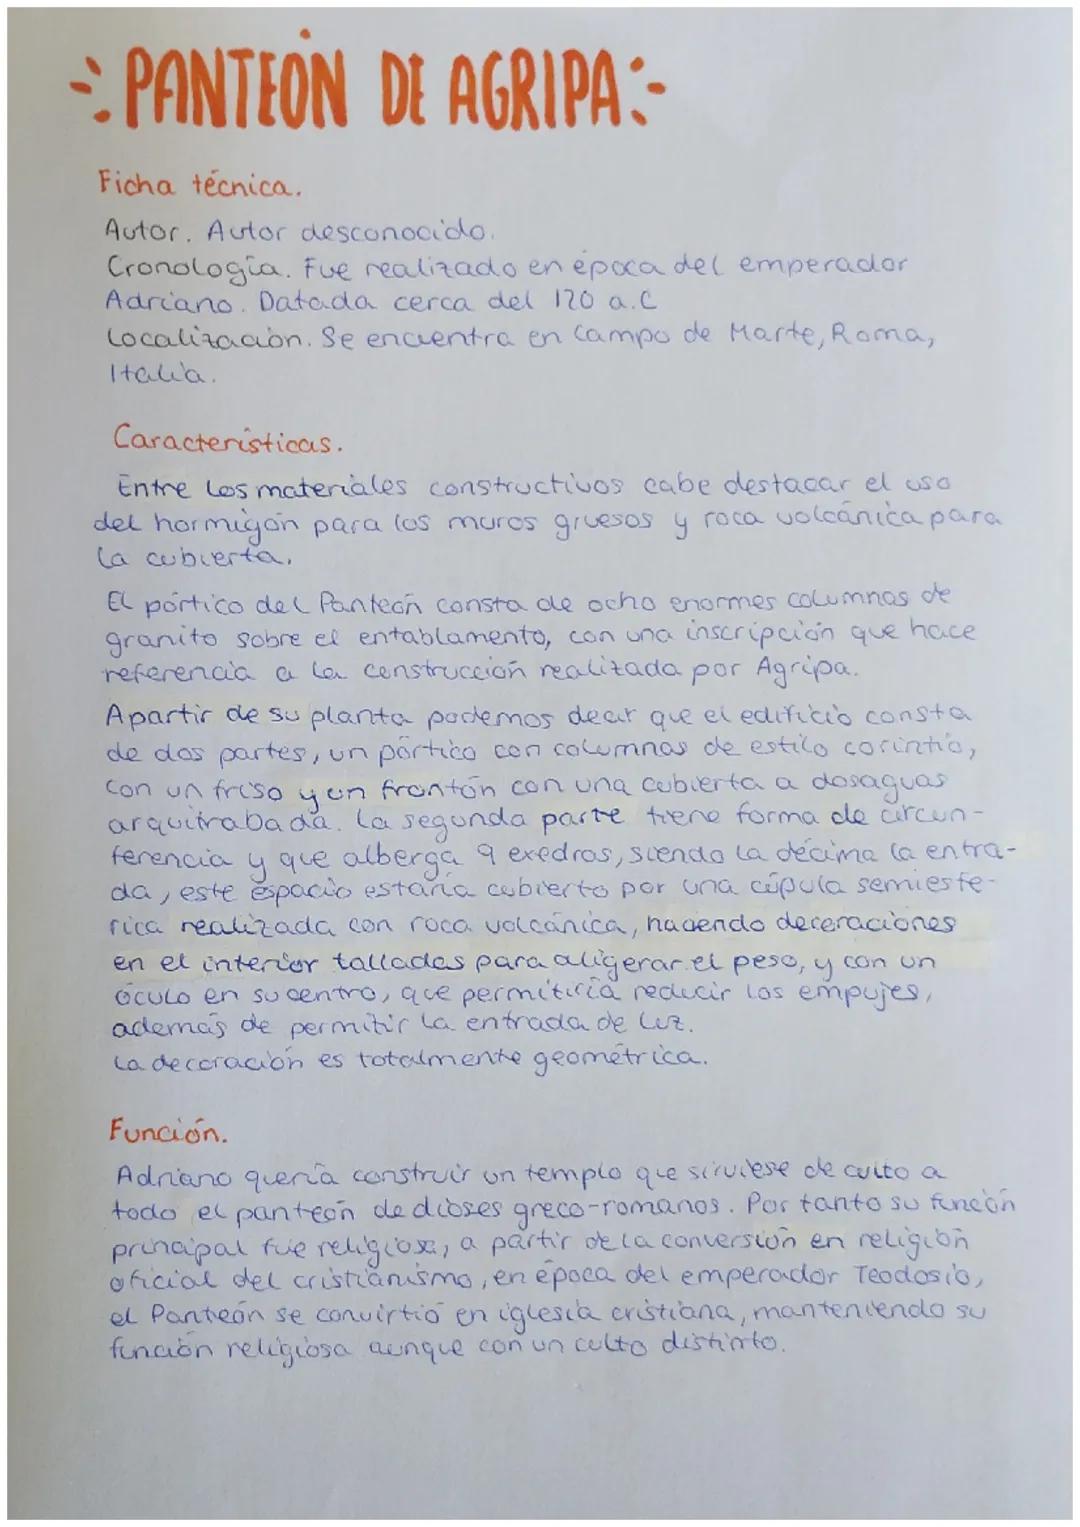 PANTEÓN DE AGRIPA
Ficha técnica.
Autor. Autor desconocido.
Cronología. Fue realizado en época del emperador
Adriano. Datada cerca del 120 a.C
Localización. Se encuentra en Campo de Marte, Roma,
Italia.
Características.
Entre los materiales constructivos cabe destacar el uso
del hormigón para los muros gruesos y roca volcánica para
la cubierta.
El pórtico del Panteón consta de ocho enormes columnas de
granito sobre el entablamento, con una inscripción que hace
referencia a la construcción realizada por Agripa.
Apartir de su planta podemos decir que el edificio consta
de dos partes, un pórtico con columnas de estilo corintio,
con un friso y un frontón con una cubierta a dosaguas
arquitrabada. La segunda parte tiene forma de circun-
ferencia y que alberga 9 exedras, siendo la décima la entra-
da, este espacio estaría cubierto por una cúpula semiesfe-
rica realizada con roca volcánica, haciendo decoraciones
en el interior talladas para aligerar el peso, y con un
óculo en su centro, que permitiría reducir los empujes,
además de permitir la entrada de luz.
La decoración es totalmente geométrica.
Función.
Adriano quería construir un templo que sirviese de culto a
todo el panteón de dioses greco-romanos. Por tanto su función
principal fue religiosa, a partir de la conversión en religión
oficial del cristianismo, en época del emperador Teodosio,
el Panteón se convirtió en iglesia cristiana, manteniendo su
función religiosa aunque con un culto distinto.